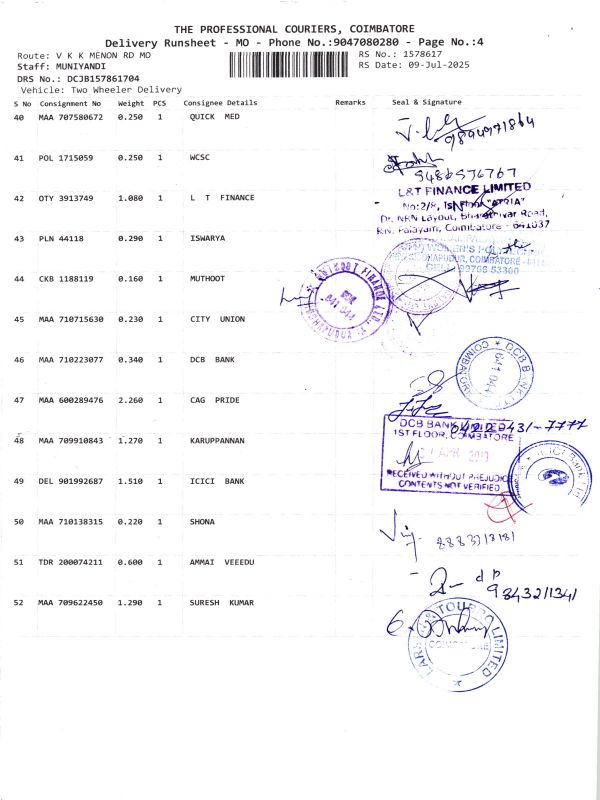 THE PROFESSIONAL COURIERS, COIMBATORE
Delivery Runsheet - MO - Phone No.:9047080280 - Page No.:4
Route: V K K MENON RD MO
RS No.: 1578617
Staff: MUNIYANDI
RS Date: 09-Jul-2025
DRS No.: DCJB157861704
Vehicle: Two Wheeler Delivery
S No Consignment No Weight PCS Consignee Details Remarks Seal & Signature
40 MAA 707580672 0.250 1 QUICK MED
9894971864
41 POL 1715059 0.250 1 WCSC
9486574767
42 OTY 3913749 1.080 1 L T FINANCE
L&T FINANCE LIMITED
No:2/8, Ist Floor "ATRIA"
Dr. NRN Layout, Bharathiyar Road,
P.N. Palayam, Coimbatore - 641037
43 PLN 44118 0.290 1 ISWARYA
WOMEN'S POLYTECHNIC
COIMBATORE
CELL: 99766 53300
44 CKB 1188119 0.160 1 MUTHOOT
MUTHOOT FINANCE LTD.
641 044
45 MAA 710715630 0.230 1 CITY UNION
46 MAA 710223077 0.340 1 DCB BANK
DCB BANK LTD
COIMBATORE
641 044
47 MAA 600289476 2.260 1 CAG PRIDE
0422 431-7777
DCB BANK LIMITED
1ST FLOOR, COIMBATORE
48 MAA 709910843 1.270 1 KARUPPANNAN
APR 2019
RECEIVED WITHOUT PREJUDICE
CONTENTS NOT VERIFIED
49 DEL 901992687 1.510 1 ICICI BANK
ICICI BANK LTD
50 MAA 710138315 0.220 1 SHONA
51 TDR 200074211 0.600 1 AMMAI VEEEDU
9843211341
52 MAA 709622450 1.290 1 SURESH KUMAR
LARSEN & TOUBRO LIMITED
COIMBATORE